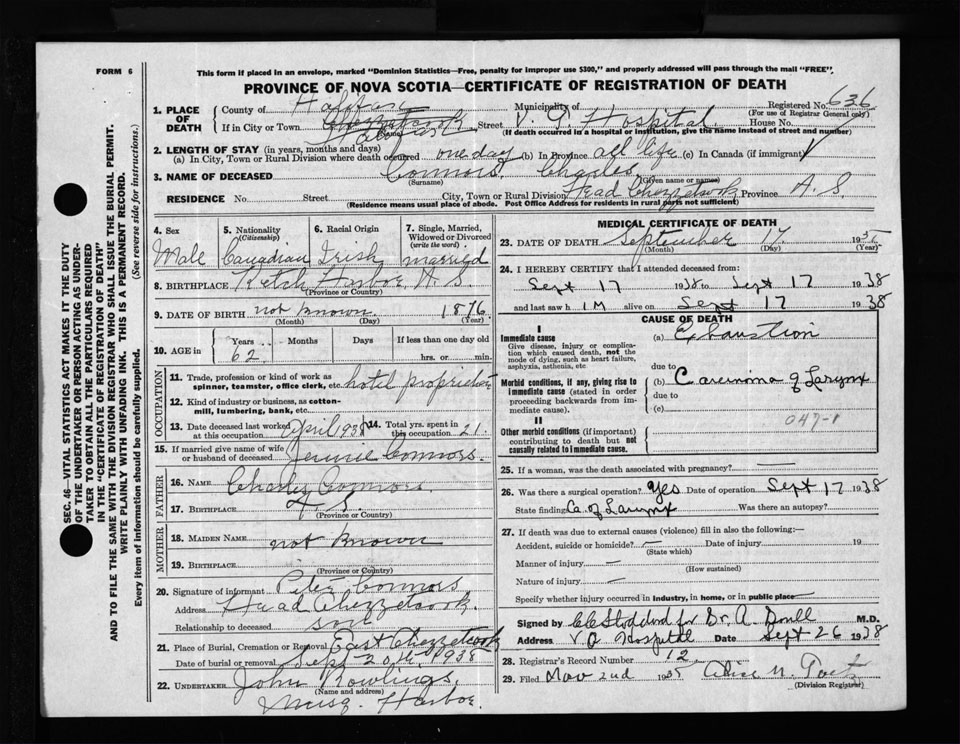 FORM 6
This form if placed in an envelope, marked "Dominion Statistics—Free, penalty for improper use $300," and properly addressed will pass through the mail "FREE".
PROVINCE OF NOVA SCOTIA—CERTIFICATE OF REGISTRATION OF DEATH
Registered No. 636
(For use of Registrar General only)
1. PLACE OF DEATH
County of Halifax Municipality of
If in City or Town Chezzetcook Halifax Street V. G. Hospital House No.
(If death occurred in a hospital or institution, give the name instead of street and number)
2. LENGTH OF STAY (in years, months and days)
(a) In City, Town or Rural Division where death occurred one day (b) In Province all life (c) In Canada (if immigrant)
3. NAME OF DECEASED Connors, Charles.
(Surname) (Given name or names)
RESIDENCE No. Street City, Town or Rural Division Head Chezzetcook Province N. S
(Residence means usual place of abode. Post Office Address for residents in rural parts not sufficient)
4. Sex Male
5. Nationality (Citizenship) Canadian
6. Racial Origin Irish
7. Single, Married, Widowed or Divorced (write the word) married
8. BIRTHPLACE Ketch Harbor N. S.
(Province or Country)
9. DATE OF BIRTH not known 1876
(Month) (Day) (Year)
10. AGE in Years 62 Months Days If less than one day old hrs. or min.
OCCUPATION
11. Trade, profession or kind of work as spinner, teamster, office clerk, etc. hotel proprietor
12. Kind of industry or business, as cotton-mill, lumbering, bank, etc.
13. Date deceased last worked at this occupation April 1938
14. Total yrs. spent in this occupation 21.
15. If married give name of wife or husband of deceased Jennie Connors.
FATHER
16. NAME Charles Connors.
17. BIRTHPLACE N. S.
(Province or Country)
MOTHER
18. MAIDEN NAME not known
19. BIRTHPLACE
(Province or Country)
20. Signature of informant Peter Connors
Address Head Chezzetcook.
Relationship to deceased son
21. Place of Burial, Cremation or Removal East Chezzetcook
Date of burial or removal Sept 20th, 1938
22. UNDERTAKER John Rowlings,
(Name and address)
Musq. Harbor.
MEDICAL CERTIFICATE OF DEATH
23. DATE OF DEATH September 17 19
(Month) (Day) (Year)
24. I HEREBY CERTIFY that I attended deceased from:
Sept 17 1938 to Sept 17 1938
and last saw h IM alive on Sept 17 1938
CAUSE OF DEATH
I
Immediate cause
Give disease, injury or complication which caused death, not the mode of dying, such as heart failure, asphyxia, asthenia, etc
(a) Exhaustion
due to
Morbid conditions, if any, giving rise to immediate cause (stated in order proceeding backwards from immediate cause).
(b) Carcinoma of Larynx
due to
(c)
047-1
II
Other morbid conditions (if important) contributing to death but not causally related to immediate cause.
25. If a woman, was the death associated with pregnancy? —
26. Was there a surgical operation? Yes Date of operation Sept 17 1938
State finding Ca. of Larynx Was there an autopsy?
27. If death was due to external causes (violence) fill in also the following:—
Accident, suicide or homicide? — Date of injury 19
(State which)
Manner of injury —
(How sustained)
Nature of injury —
Specify whether injury occurred in Industry, in home, or in public place —
Signed by C E Stoddard for Dr. A. Doull M.D.
Address V G Hospital Date Sept 26 1938
28. Registrar's Record Number 12.
29. Filed Nov 2nd 19 Alice M.
(Division Registrar)
SEC. 46—VITAL STATISTICS ACT MAKES IT THE DUTY
OF THE UNDERTAKER OR PERSON ACTING AS UNDERTAKER TO OBTAIN ALL THE PARTICULARS REQUIRED
IN THE "CERTIFICATE OF REGISTRATION OF DEATH"
AND TO FILE THE SAME WITH THE DIVISION REGISTRAR WHO SHALL ISSUE THE BURIAL PERMIT.
WRITE PLAINLY WITH UNFADING INK. THIS IS A PERMANENT RECORD.
Every item of information should be carefully supplied. (See reverse side for instructions.)